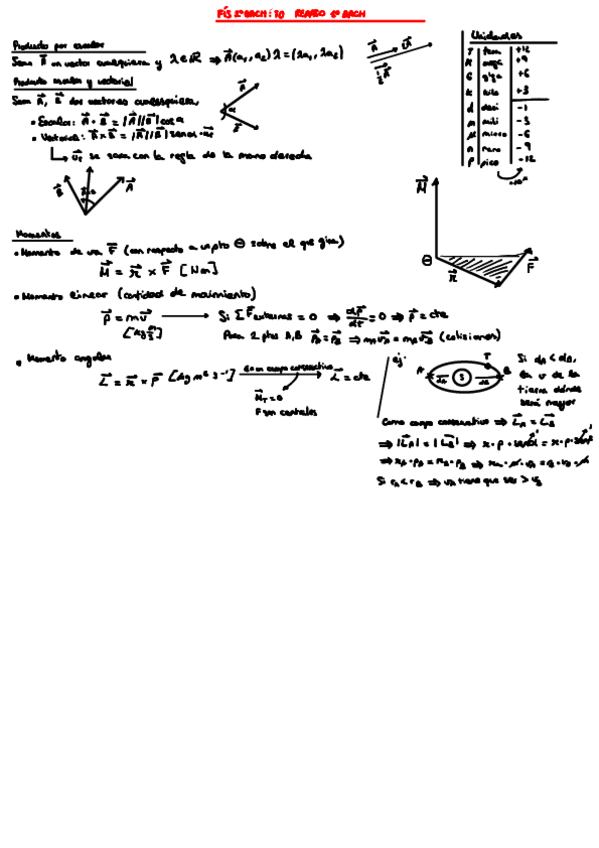 FÍS 2º BACH: T0 REPASO 1º BACH
Producto por escalar
Sean A⃗ un vector cualquiera y λ∈ℝ ⇒ A⃗(a₁, a₂)λ = (λa₁, λa₂)
Producto escalar y vectorial
Sean A⃗, B⃗ dos vectores cualesquiera,
• Escalar: A⃗ · B⃗ = |A⃗||B⃗| cos α
• Vectorial: A⃗ × B⃗ = |A⃗||B⃗|
se saca con la regla de la mano derecha
Unidades
T tera +12
M mega +9
G giga +6
K kilo +3
d deci -1
m mili -3
μ micro -6
n nano -9
p pico -12
Momentos
• Momento de una F⃗ (con respecto a un pto Θ sobre el que gira)
M⃗ = r⃗ × F⃗ [Nm]
M⃗
Θ r⃗ F⃗
• Momento lineal (cantidad de movimiento)
p⃗ = mv⃗ → Si ΣF⃗ externas = 0 ⇒ dp⃗/dt = 0 ⇒ p⃗ = cte
Para 2 ptos A,B (colisiones)
• Momento angular
L⃗ = r⃗ × p⃗ [kg m² s⁻¹] En un campo conservativo → L⃗ = cte
M⃗T = 0
F son centrales
ej:
A dA S dB B T
Si dA < dB,
la v de la
tierra dónde
será mayor
Como campo conservativo ⇒ L⃗A = L⃗B
⇒ |L⃗A| = |L⃗B| ⇒
⇒ rA · pA = rB · pB ⇒
Si rA < rB ⇒ vA tiene que ser > vB